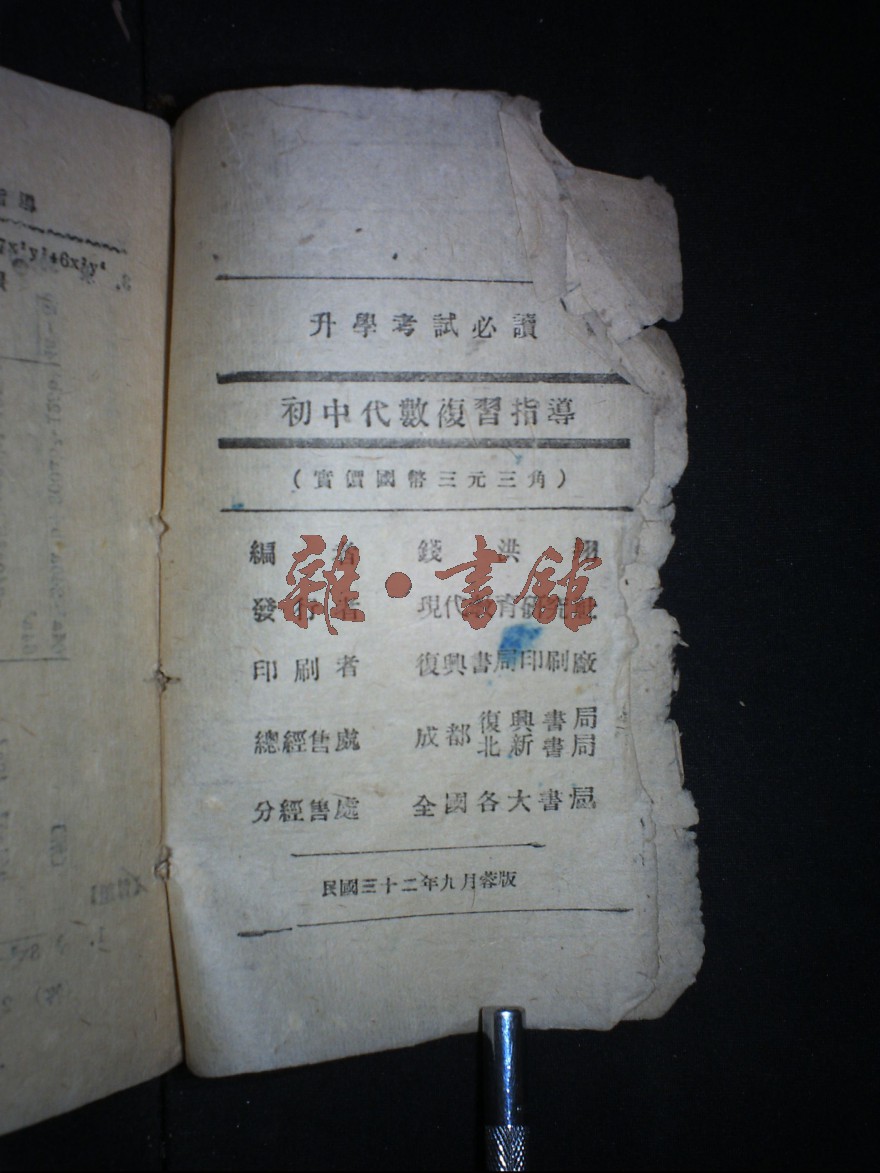 7x²y³+6x³y⁴
升學考試必讀
初中代數複習指導
(實價國幣三元三角)
編者 錢洪翔
發行者 現代教育研究社
印刷者 復興書局印刷廠
總經售處 成都 復興書局
北新書局
分經售處 全國各大書局
民國三十二年九月蓉版
雜·書館